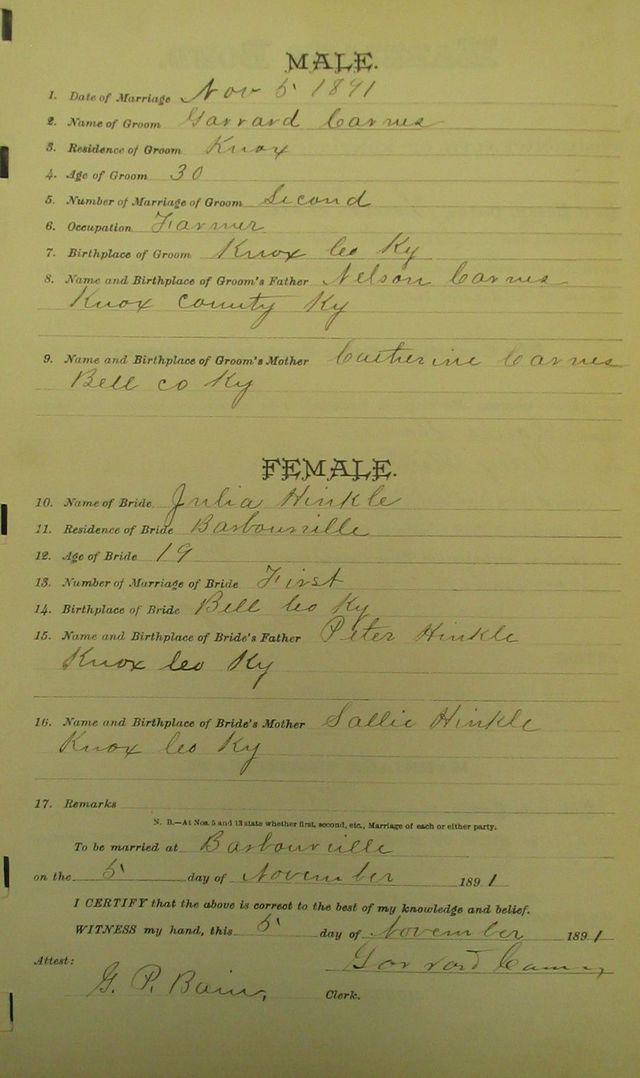 MALE.
1. Date of Marriage Nov 5 1891
2. Name of Groom Garrard Carnes
3. Residence of Groom Knox
4. Age of Groom 30
5. Number of Marriage of Groom Second
6. Occupation Farmer
7. Birthplace of Groom Knox Co Ky
8. Name and Birthplace of Groom's Father Nelson Carnes
Knox county Ky
9. Name and Birthplace of Groom's Mother Catherine Carnes
Bell co Ky
FEMALE.
10. Name of Bride Julia Hinkle
11. Residence of Bride Barbourville
12. Age of Bride 19
13. Number of Marriage of Bride First
14. Birthplace of Bride Bell Co Ky
15. Name and Birthplace of Bride's Father Peter Hinkle
Knox Co Ky
16. Name and Birthplace of Bride's Mother Sallie Hinkle
Knox Co Ky
17. Remarks
N. B.—At Nos. 5 and 13 state whether first, second, etc., Marriage of each or either party.
To be married at Barbourville
on the 5 day of November 1891
I CERTIFY that the above is correct to the best of my knowledge and belief.
WITNESS my hand, this 5 day of November 1891
Garrard Carnes
Attest:
G. P. Bain, Clerk.